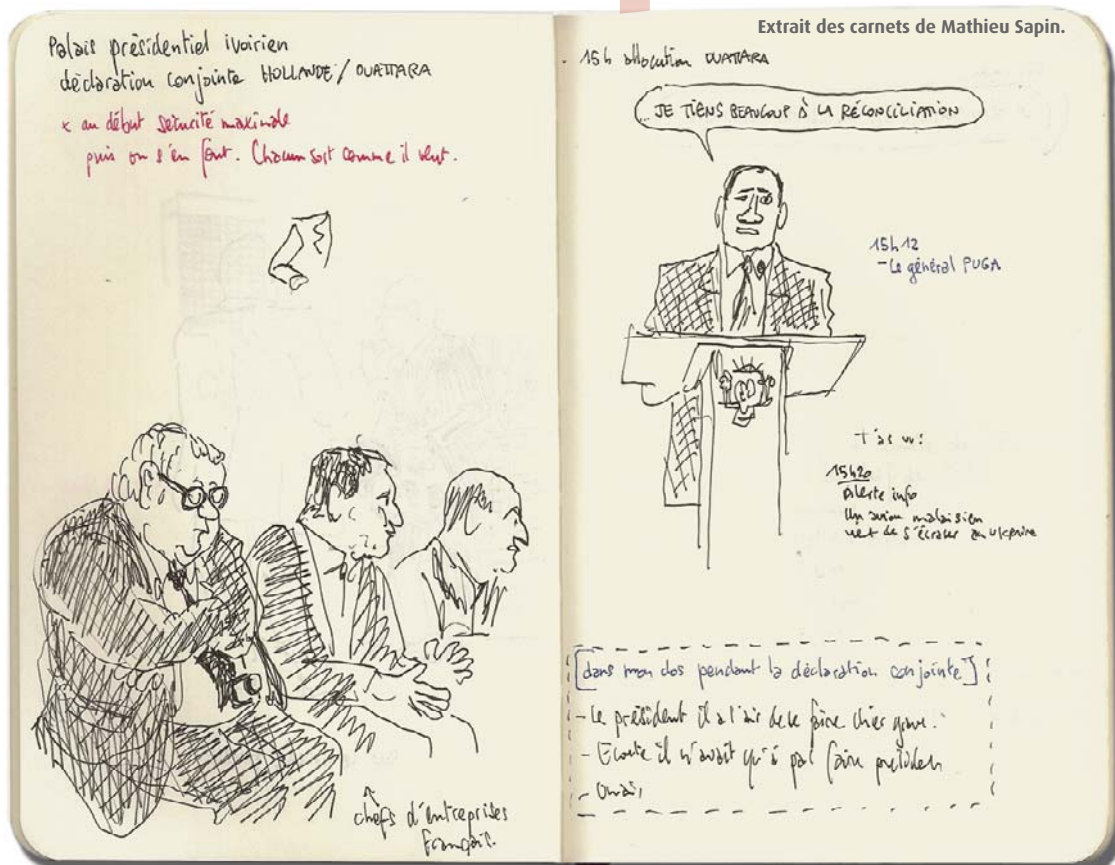 Extrait des carnets de Mathieu Sapin.
Palais présidentiel ivoirien
déclaration conjointe HOLLANDE / OUATTARA
x au début sécurité maximale
puis on s'en fout. Chacun sort comme il veut.
chefs d'entreprises
français.
15h allocution OUATTARA
JE TIENS BEAUCOUP À LA RÉCONCILIATION
15h12
- Le général PUGA
T'as vu?
15h20
Alerte info
Un avion malaisien
vient de s'écraser en Ukraine
[dans mon dos pendant la déclaration conjointe]
- Le président il a l'air de se faire chier grave.
- Ecoute il n'avait qu'à pas faire président
- Ouais